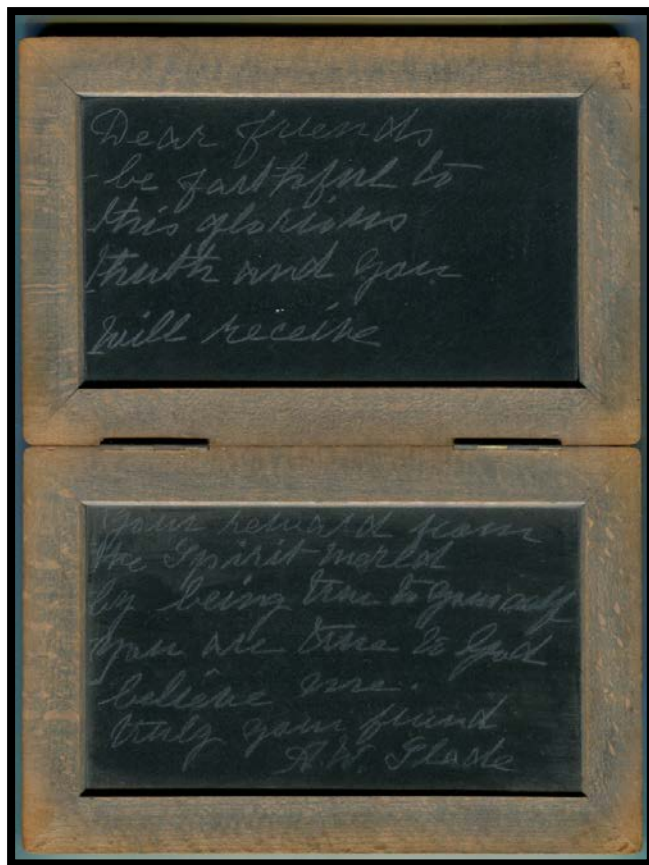 Dear friends
be faithful to
this glorious
truth and you
will receive
your reward from
the Spirit world
by being true to yourself
you are true to God
believe me.
truly your friend
A.W. Slade